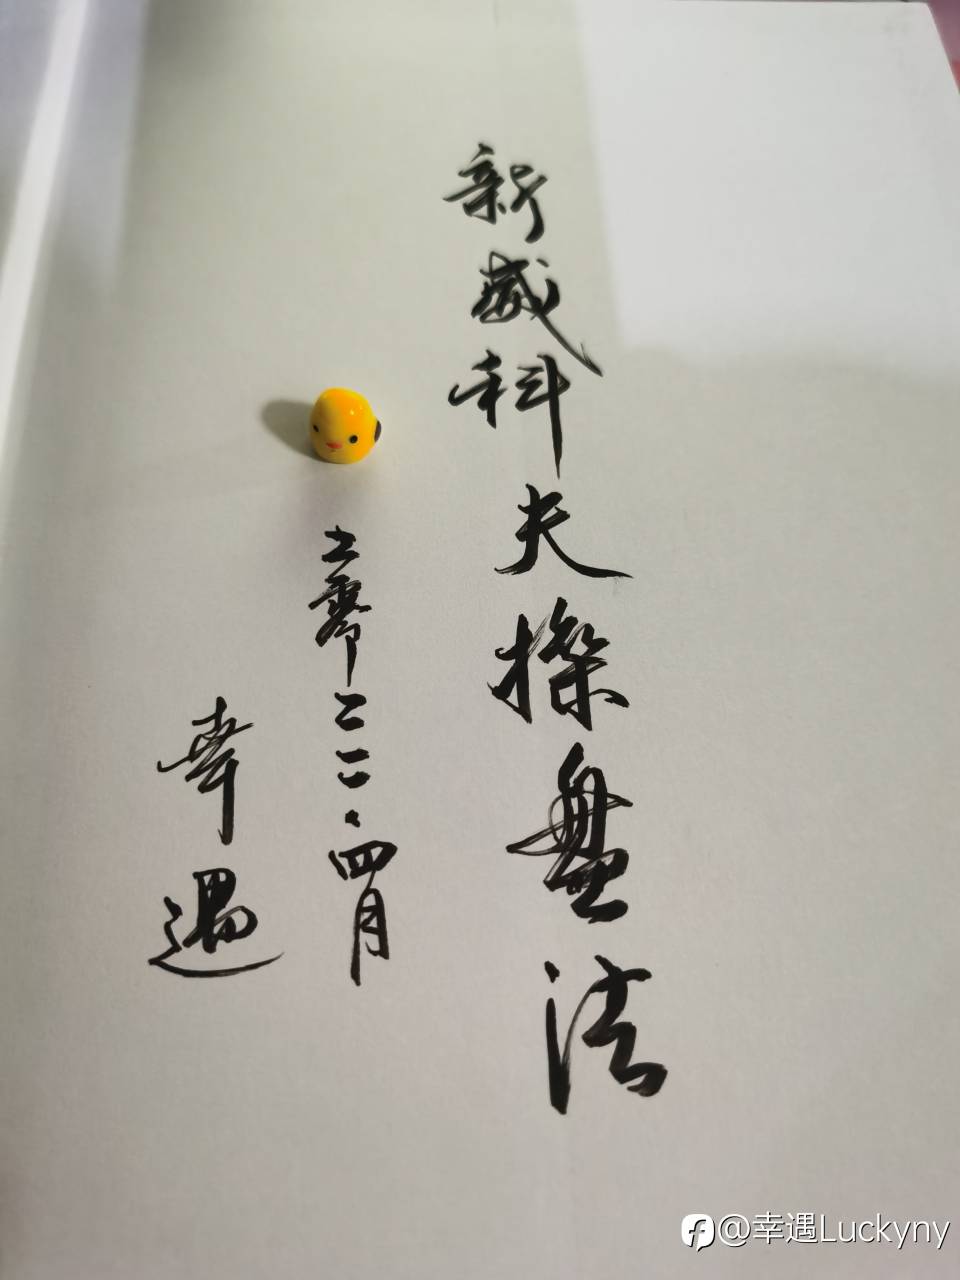 新威科夫操盘法
二零二二、四月
幸遇
@幸遇Luckyny